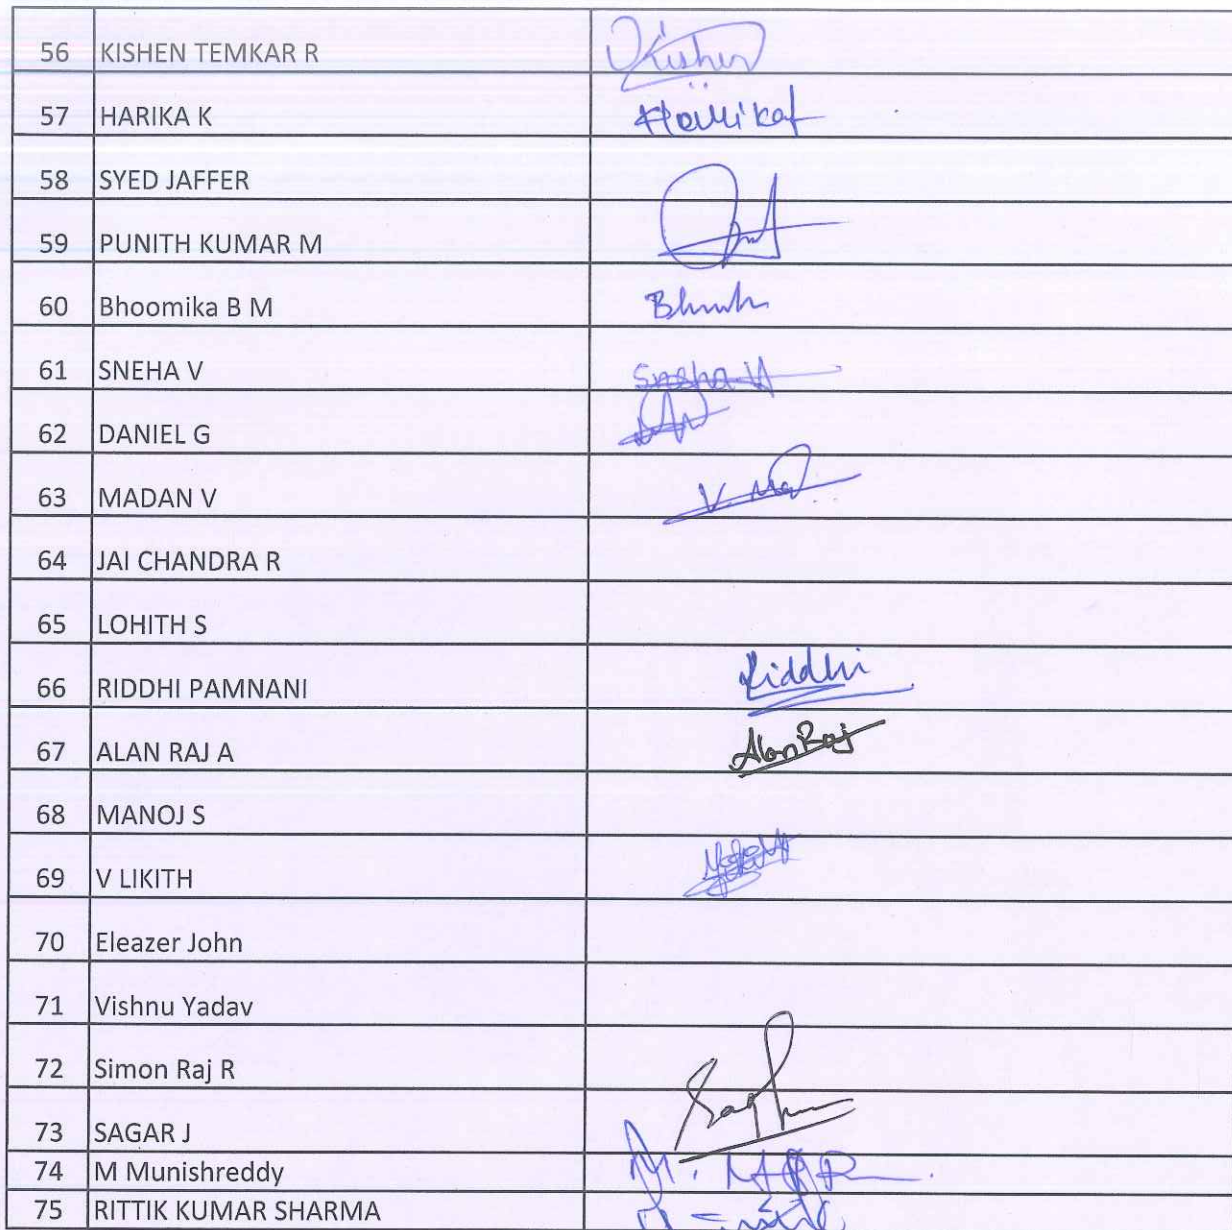 56 KISHEN TEMKAR R Kishen
57 HARIKA K
58 SYED JAFFER
59 PUNITH KUMAR M
60 Bhoomika B M
61 SNEHA V Sneha V
62 DANIEL G
63 MADAN V
64 JAI CHANDRA R
65 LOHITH S
66 RIDDHI PAMNANI Riddhi
67 ALAN RAJ A Alan Raj
68 MANOJ S
69 V LIKITH
70 Eleazer John
71 Vishnu Yadav
72 Simon Raj R
73 SAGAR J
74 M Munishreddy
75 RITTIK KUMAR SHARMA